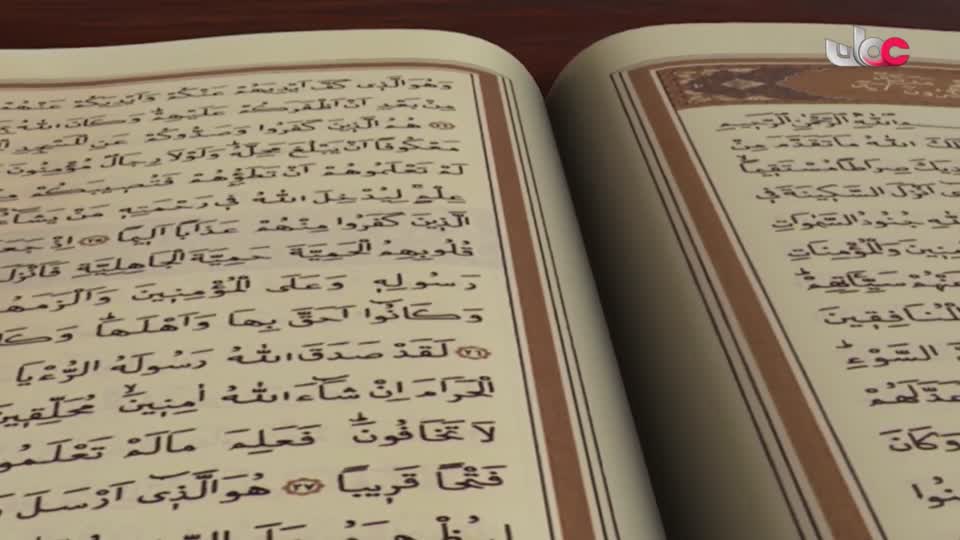 اللّٰهِ الرَّحْمٰنِ الرَّحِيمِ
لَكَ اللّٰهُ مَا تَقَدَّمَ مِنْ
صِرَاطًا مُسْتَقِيمًا
اَنْزَلَ السَّكِينَةَ فِي
جُنُودُ السَّمٰوَاتِ
وَالْمُؤْمِنَاتِ
سَيِّاٰتِهِمْ
الْمُنَافِقِينَ
السَّوْءِ
لَهُمْ
وَكَانَ
وَهُوَ الَّذِي كَفَّ اَيْدِيَهُمْ عَنْكُمْ وَاَيْدِيَكُمْ عَنْهُمْ
مِنْ بَعْدِ اَنْ اَظْفَرَكُمْ عَلَيْهِمْ وَكَانَ اللّٰهُ
هُمُ الَّذِينَ كَفَرُوا وَصَدُّوكُمْ عَنِ الْمَسْجِدِ
مَعْكُوفًا اَنْ يَبْلُغَ مَحِلَّهُ وَلَوْلَا رِجَالٌ مُؤْمِنُونَ
لَمْ تَعْلَمُوهُمْ اَنْ تَطَؤُهُمْ فَتُصِيبَكُمْ
عِلْمٍ لِيُدْخِلَ اللّٰهُ فِي رَحْمَتِهِ مَنْ يَشَاءُ
الَّذِينَ كَفَرُوا مِنْهُمْ عَذَابًا اَلِيمًا ﴿٢٥﴾ اِذْ جَعَلَ
قُلُوبِهِمُ الْحَمِيَّةَ حَمِيَّةَ الْجَاهِلِيَّةِ فَاَنْزَلَ
رَسُولِهِ وَعَلَى الْمُؤْمِنِينَ وَاَلْزَمَهُمْ
وَكَانُوا اَحَقَّ بِهَا وَاَهْلَهَا وَكَانَ
﴿٢٦﴾ لَقَدْ صَدَقَ اللّٰهُ رَسُولَهُ الرُّءْيَا
الْحَرَامَ اِنْ شَاءَ اللّٰهُ اٰمِنِينَ مُحَلِّقِينَ
لَا تَخَافُونَ فَعَلِمَ مَا لَمْ تَعْلَمُوا
فَتْحًا قَرِيبًا ﴿٢٧﴾ هُوَ الَّذِي اَرْسَلَ